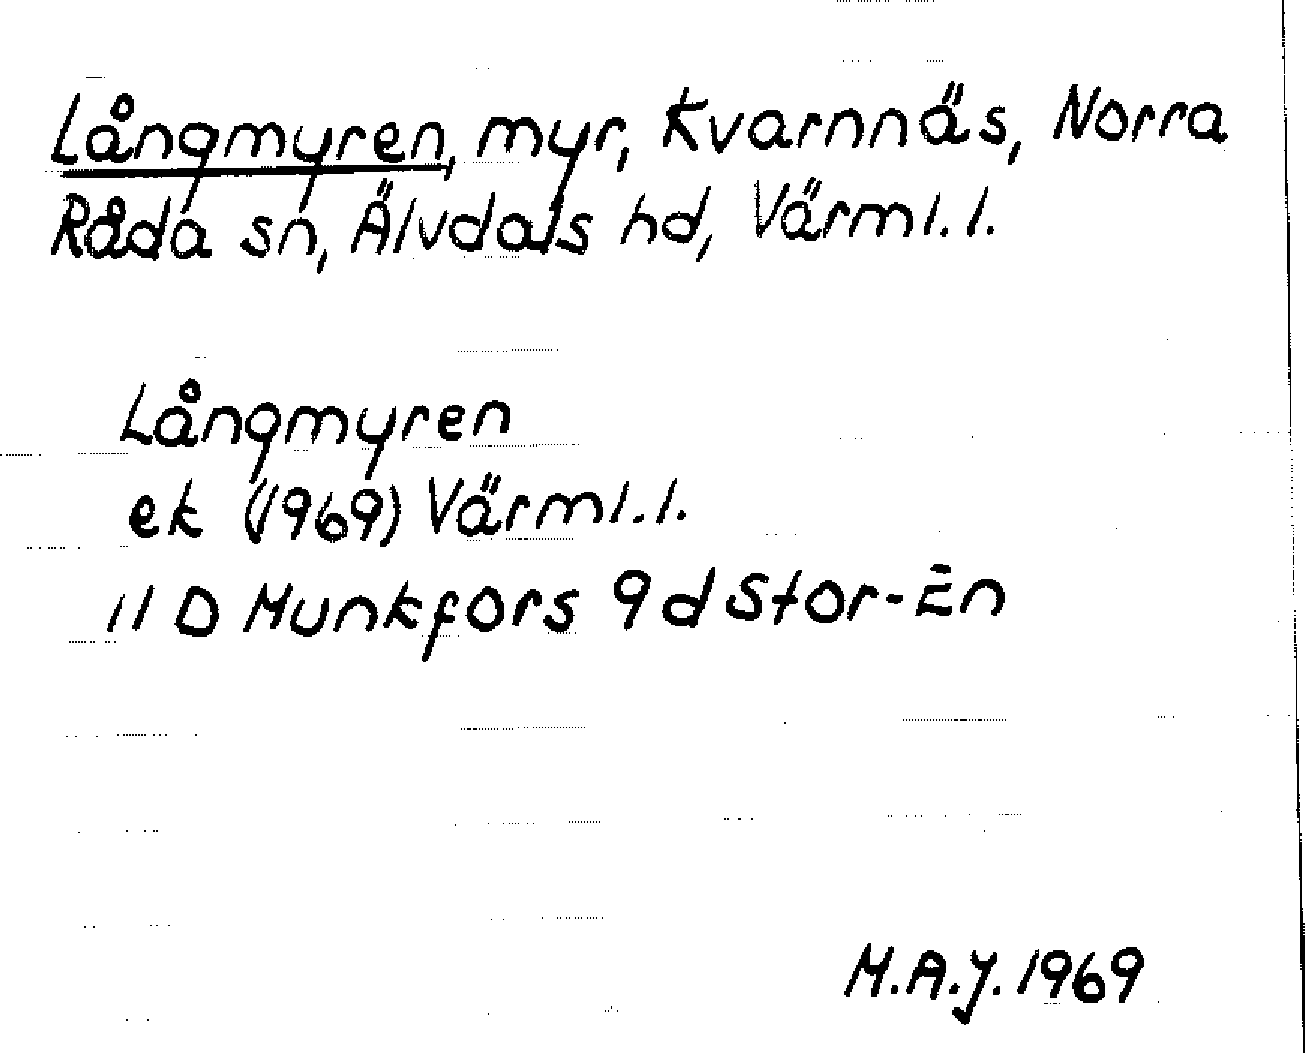 Långmyren, myr, Kvarnnäs, Norra
Råda sn, Älvdals hd, Värml. l.
Långmyren
ek (1969) Värml. l.
11 D Munkfors 9 d Stor-En
M.A.J. 1969